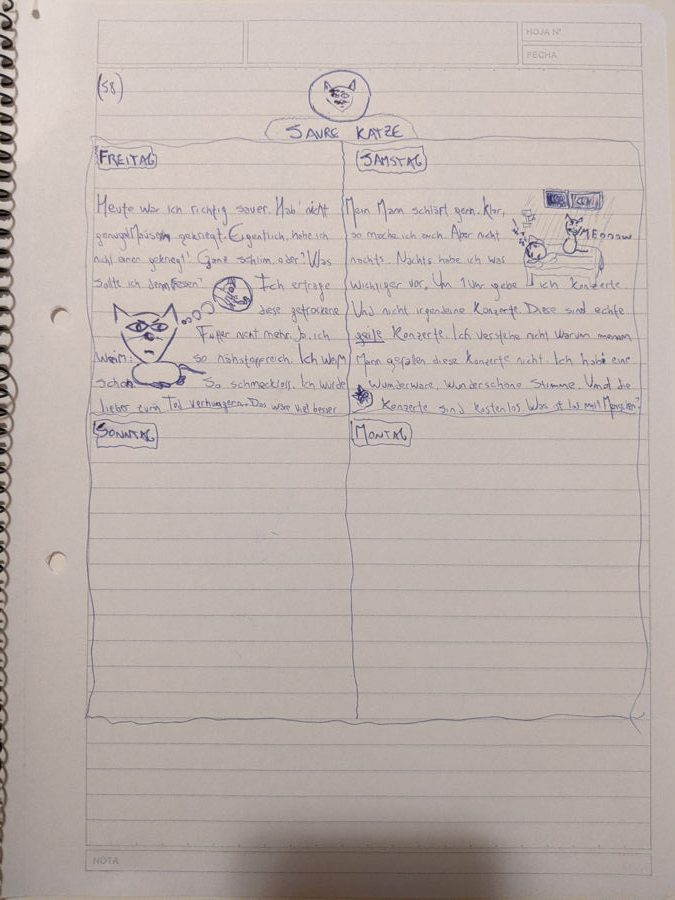 HOJA N°
FECHA
(58)
SAURE KATZE
FREITAG
Heute war ich richtig sauer. Hab' nicht
genug Mäuse gekriegt. Eigentlich habe ich
nicht einen gekriegt! Ganz schlim, oder? Was
sollte ich denn fressen? Ich ertrage
diese getrockene
Futter nicht mehr. Ja, ich
Weiß: so nährstoffreich. Ich weiß
schon. So schmecklos. Ich würde
lieber zum Tod verhungern. Das wäre viel besser
SAMSTAG
Mein Mann schläft gern. Klar,
so mache ich auch. Aber nicht
MEOOOW
nachts. Nachts habe ich was
wichtiger vor. Um 1 Uhr gebe ich Konzerte
Und nicht irgendeine Konzerte. Diese sind echte
geile Konzerte. Ich verstehe nicht warum meinem
Mann gefallen diese Konzerte nicht. Ich habe eine
wunderbare, wunderschöne Stimme. Und die
Konzerte sind kostenlos. Was ist los mit Menschen?
SONNTAG
MONTAG
NOTA